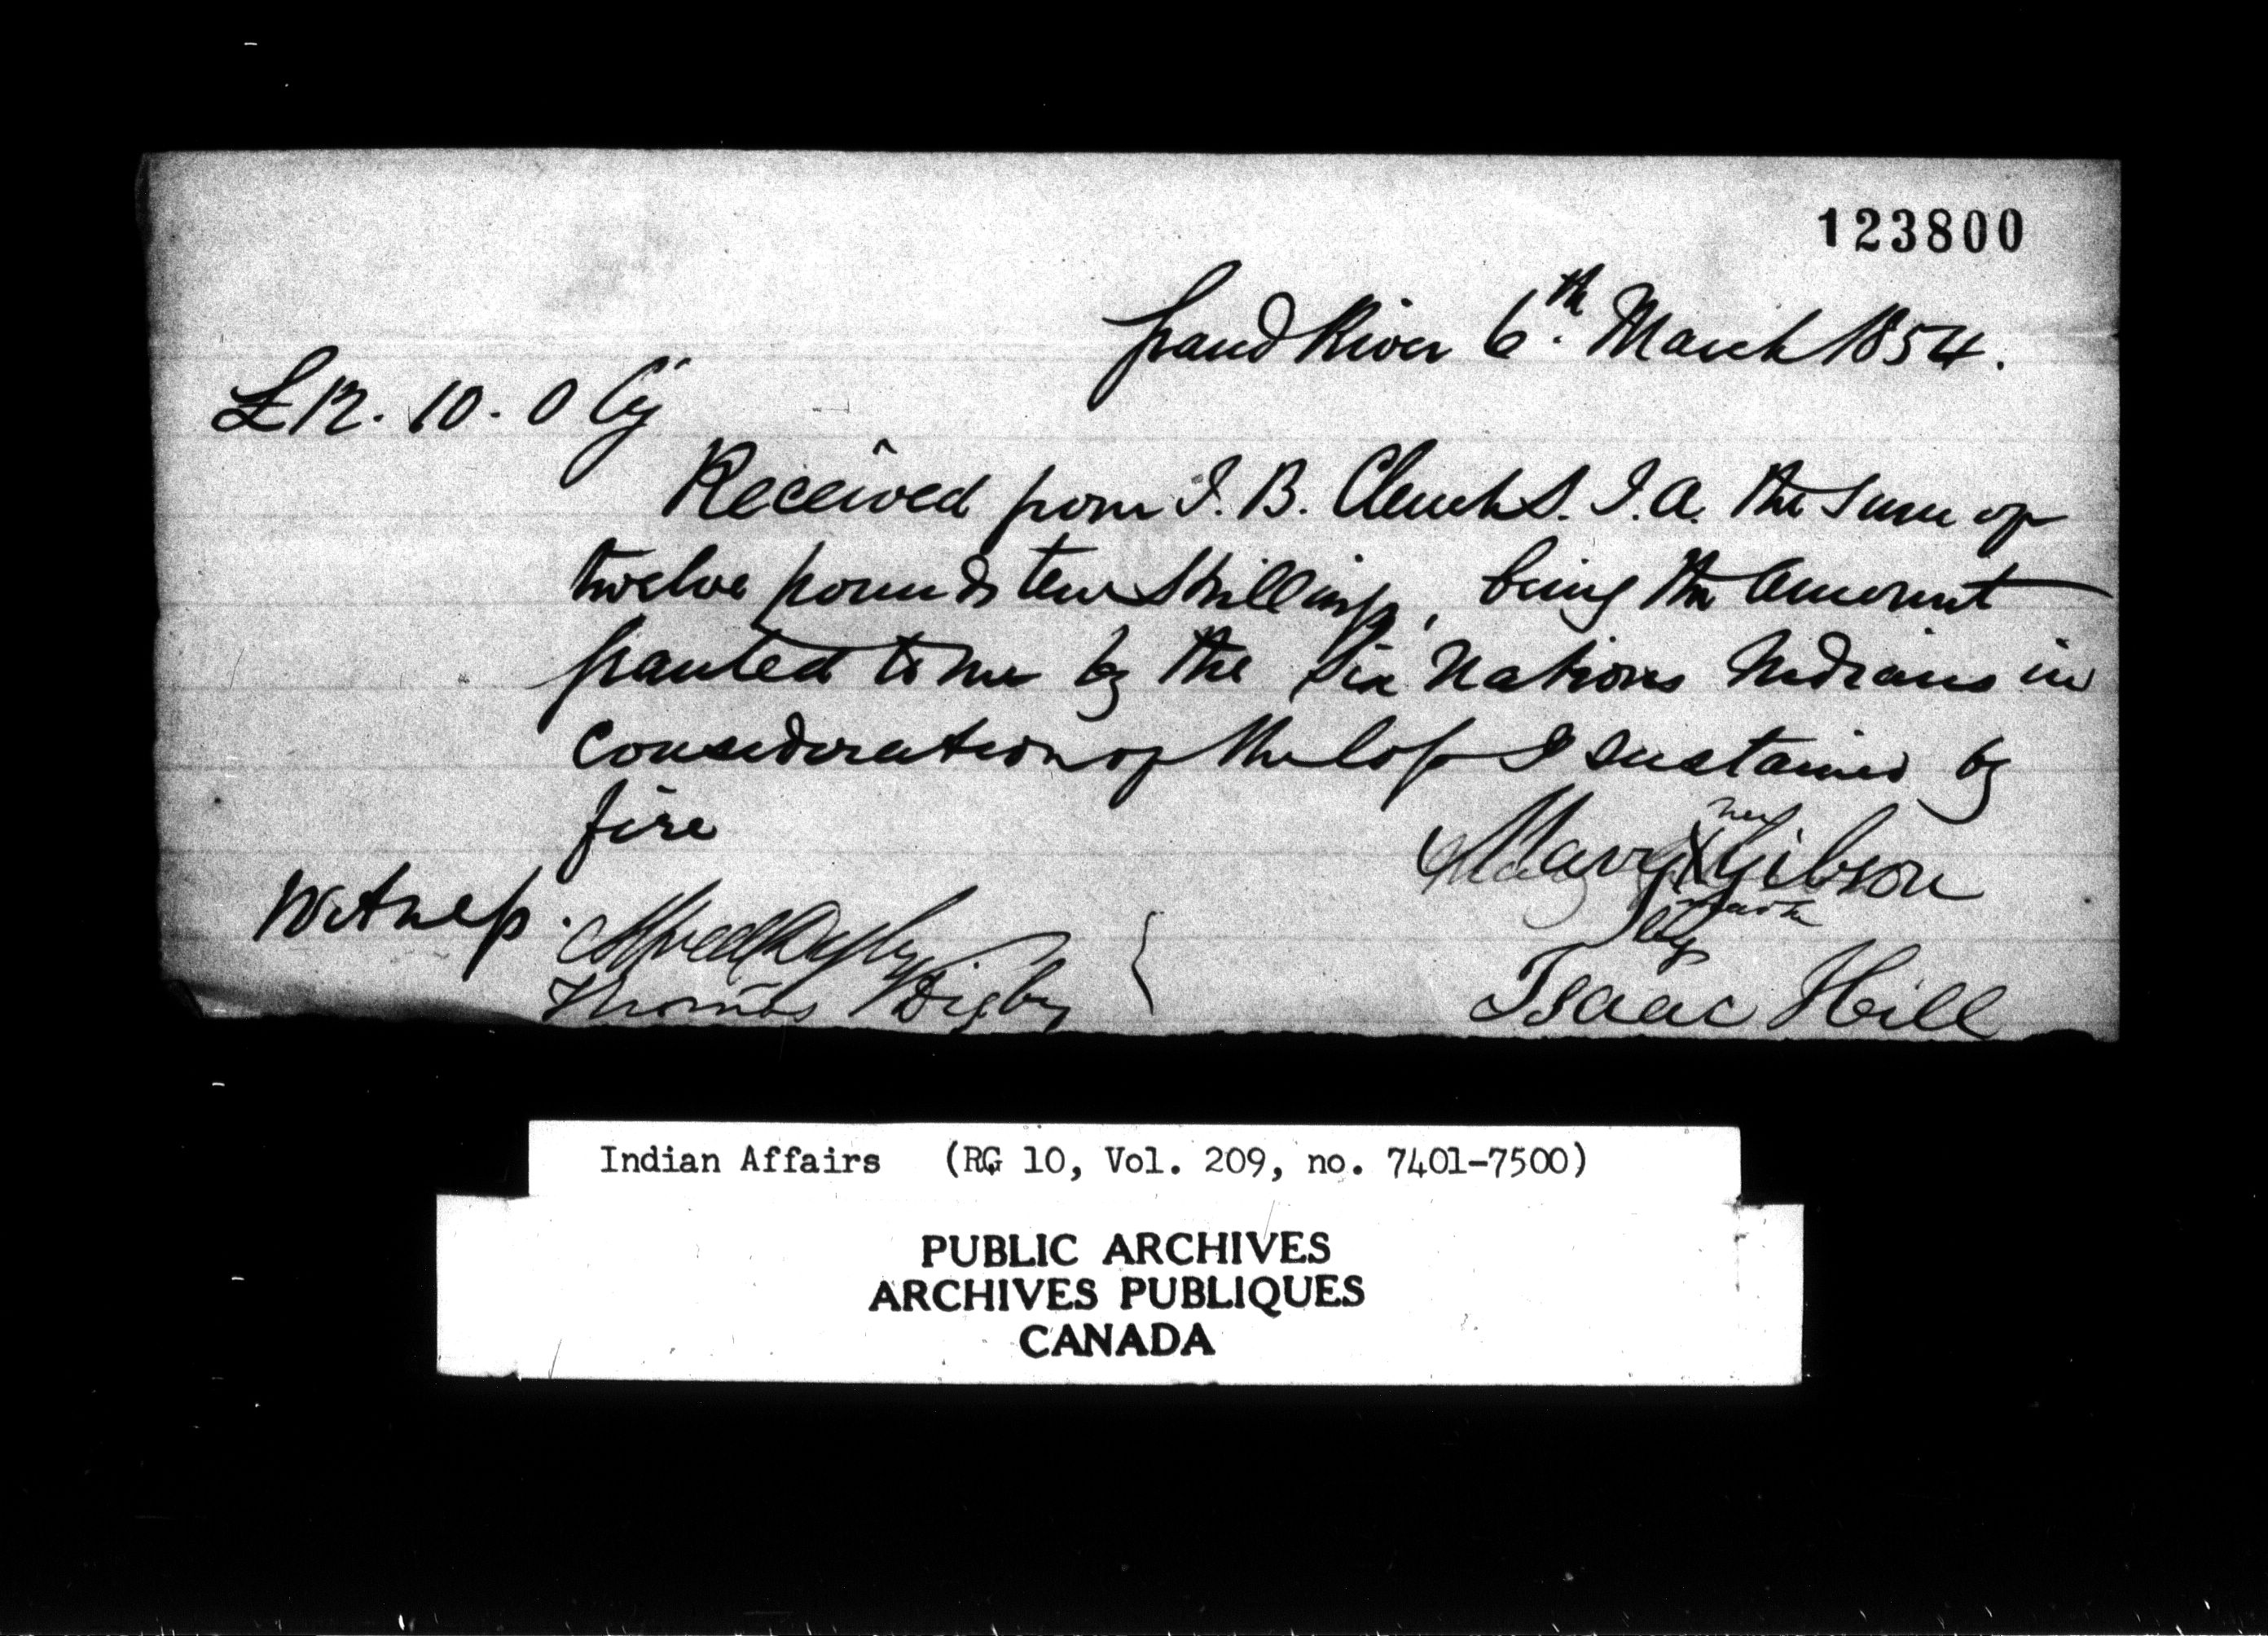 123800
Grand River 6th. March 1854.
£12. 10. 0 Cy
Received from J. B. Clench S. I. A. the sum of
twelve pounds ten shillings, being the amount
granted to me by the Six Nations Indians in
consideration of the loss I sustained by
fire
her
Mary X Gibson
mark
by
Isaac Hill
Witness.
Alfred Digby
Thomas Digby
Indian Affairs (RG 10, Vol. 209, no. 7401-7500)
PUBLIC ARCHIVES
ARCHIVES PUBLIQUES
CANADA